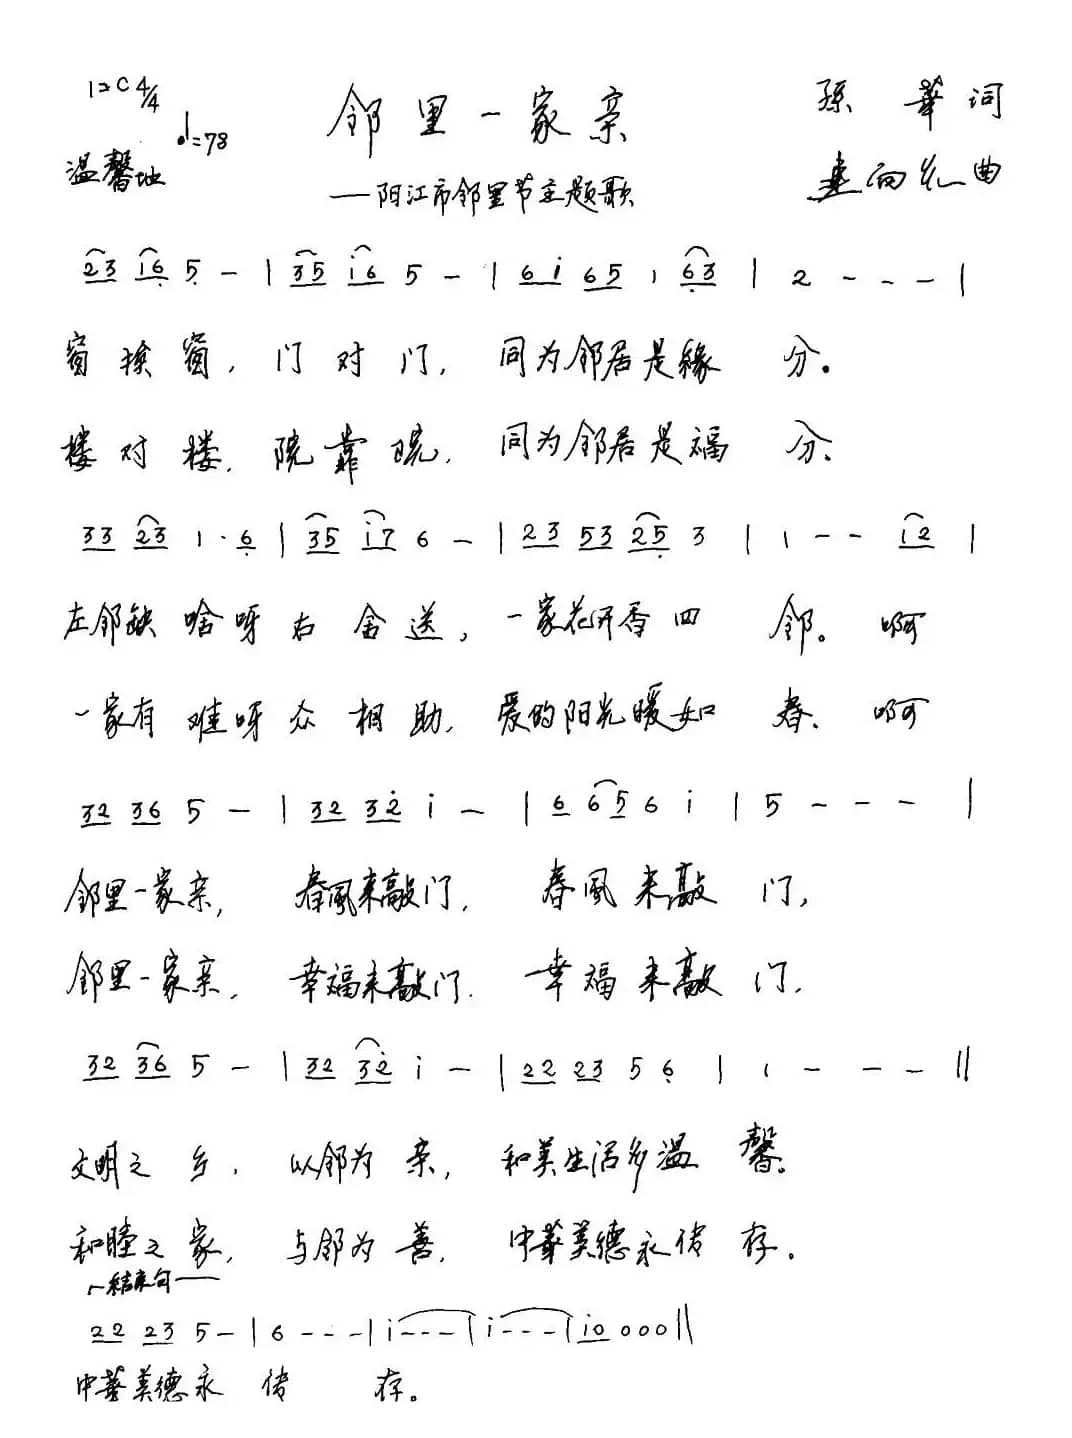 1=C 4/4 邻里一家亲 孫華词
♩=78
温馨地 ——阳江市邻里节主题歌 向
23 16 5 - | 35 i6 5 - | 6i 65 1 63 | 2 - - - |
窗挨窗，门对门，同为邻居是緣分。
楼对楼，院靠院，同为邻居是福分、
33 23 1·6 | 35 i7 6 - | 23 53 25 3 | 1 - - i2 |
左邻缺啥呀右舍送，一家花开香四邻。啊
一家有难呀众相助，爱的阳光暖如春、啊
32 36 5 - | 32 32 i - | 6 65 6 i | 5 - - - |
邻里一家亲，春風来敲门，春風来敲门，
邻里一家亲，幸福来敲门．幸福来敲门，
32 36 5 - | 32 32 i - | 22 23 5 6 | 1 - - - ‖
文明之乡，以邻为亲，和美生活多温馨。
和睦之家，与邻为善，中華美德永传存。
结束句——
22 23 5 - | 6 - - - | i - - - | i - - - | i0 0 0 0 ‖
中華美德永传存。